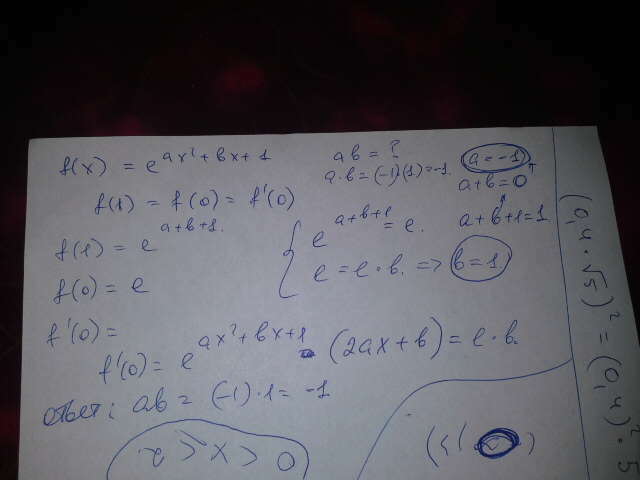 f(x) = e^{ax²+bx+1}   ab = ?
f(1) = f(0) = f'(0)   a·b = (-1)(1) = -1.   a = -1
a+b = 0
f(1) = e^{a+b+1}.   { e^{a+b+1} = e.   a+b+1 = 1
f(0) = e   e = e·b. => b = 1
f'(0) =
f'(0) = e^{ax²+bx+1} · (2ax+b) = e·b
Ответ: ab = (-1)·1 = -1
2 ⩾ x > 0
(0,4·√5)² = (0,4)²·5